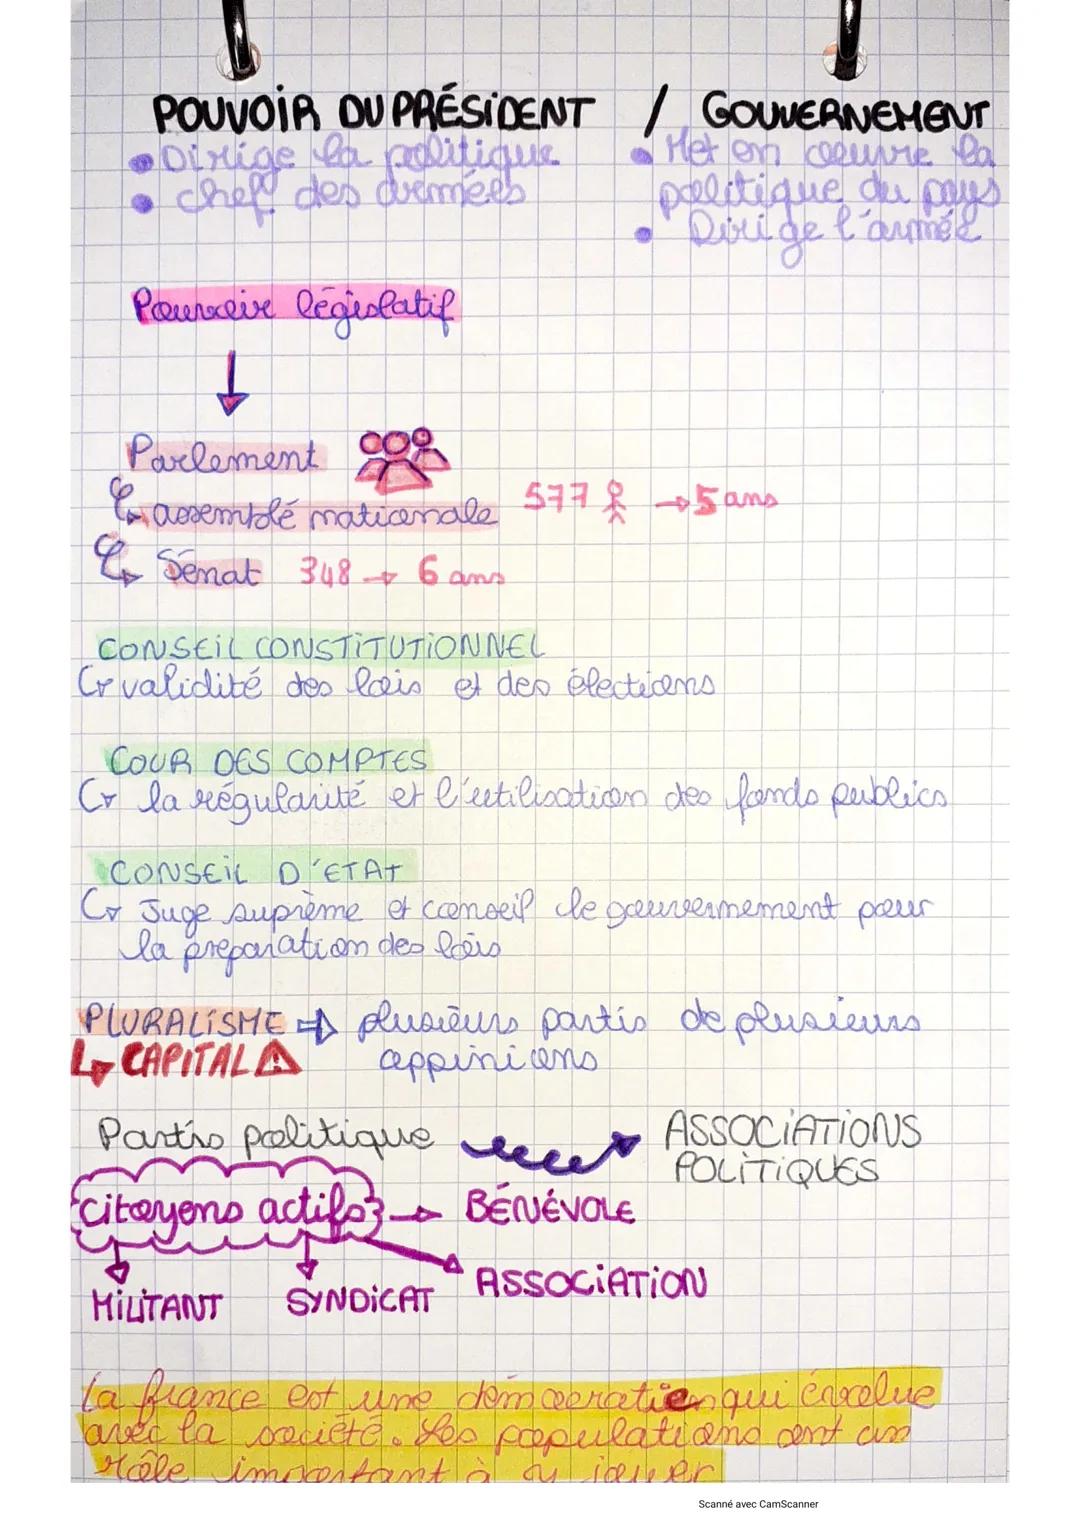 POUVOIR DU PRÉSIDENT / GOUVERNEMENT
• Dirige la politique
• chef des armées
• Met en oeuvre la
politique du pays
• Dirige l'armée
Pouvoir législatif
Parlement
assemblé nationale 577 → 5 ans
Sénat 348 → 6 ans
CONSEIL CONSTITUTIONNEL
validité des lois et des élections
COUR DES COMPTES
la régularité et l'utilisation des fonds publics
CONSEIL D'ETAT
Juge suprème et conseil le gouvernement pour
la preparation des lois
PLURALISME ⇒ plusieurs partis de plusieurs
appinions
↳ CAPITAL ⚠
Partis politique
ASSOCIATIONS
POLITIQUES
citoyens actifs → BÉNÉVOLE
MILITANT SYNDICAT ASSOCIATION
La france est une démocratie qui évolue
avec la société. Les populations ont un
rôle important à y jouer
Scanné avec CamScanner